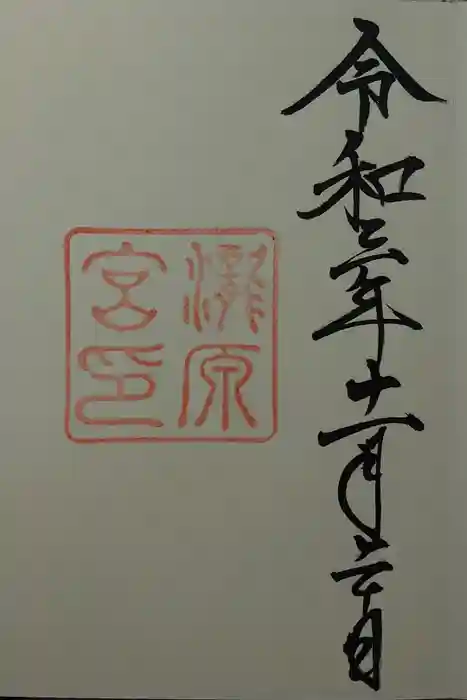 令和三年十一月二十日
瀧原
宮印